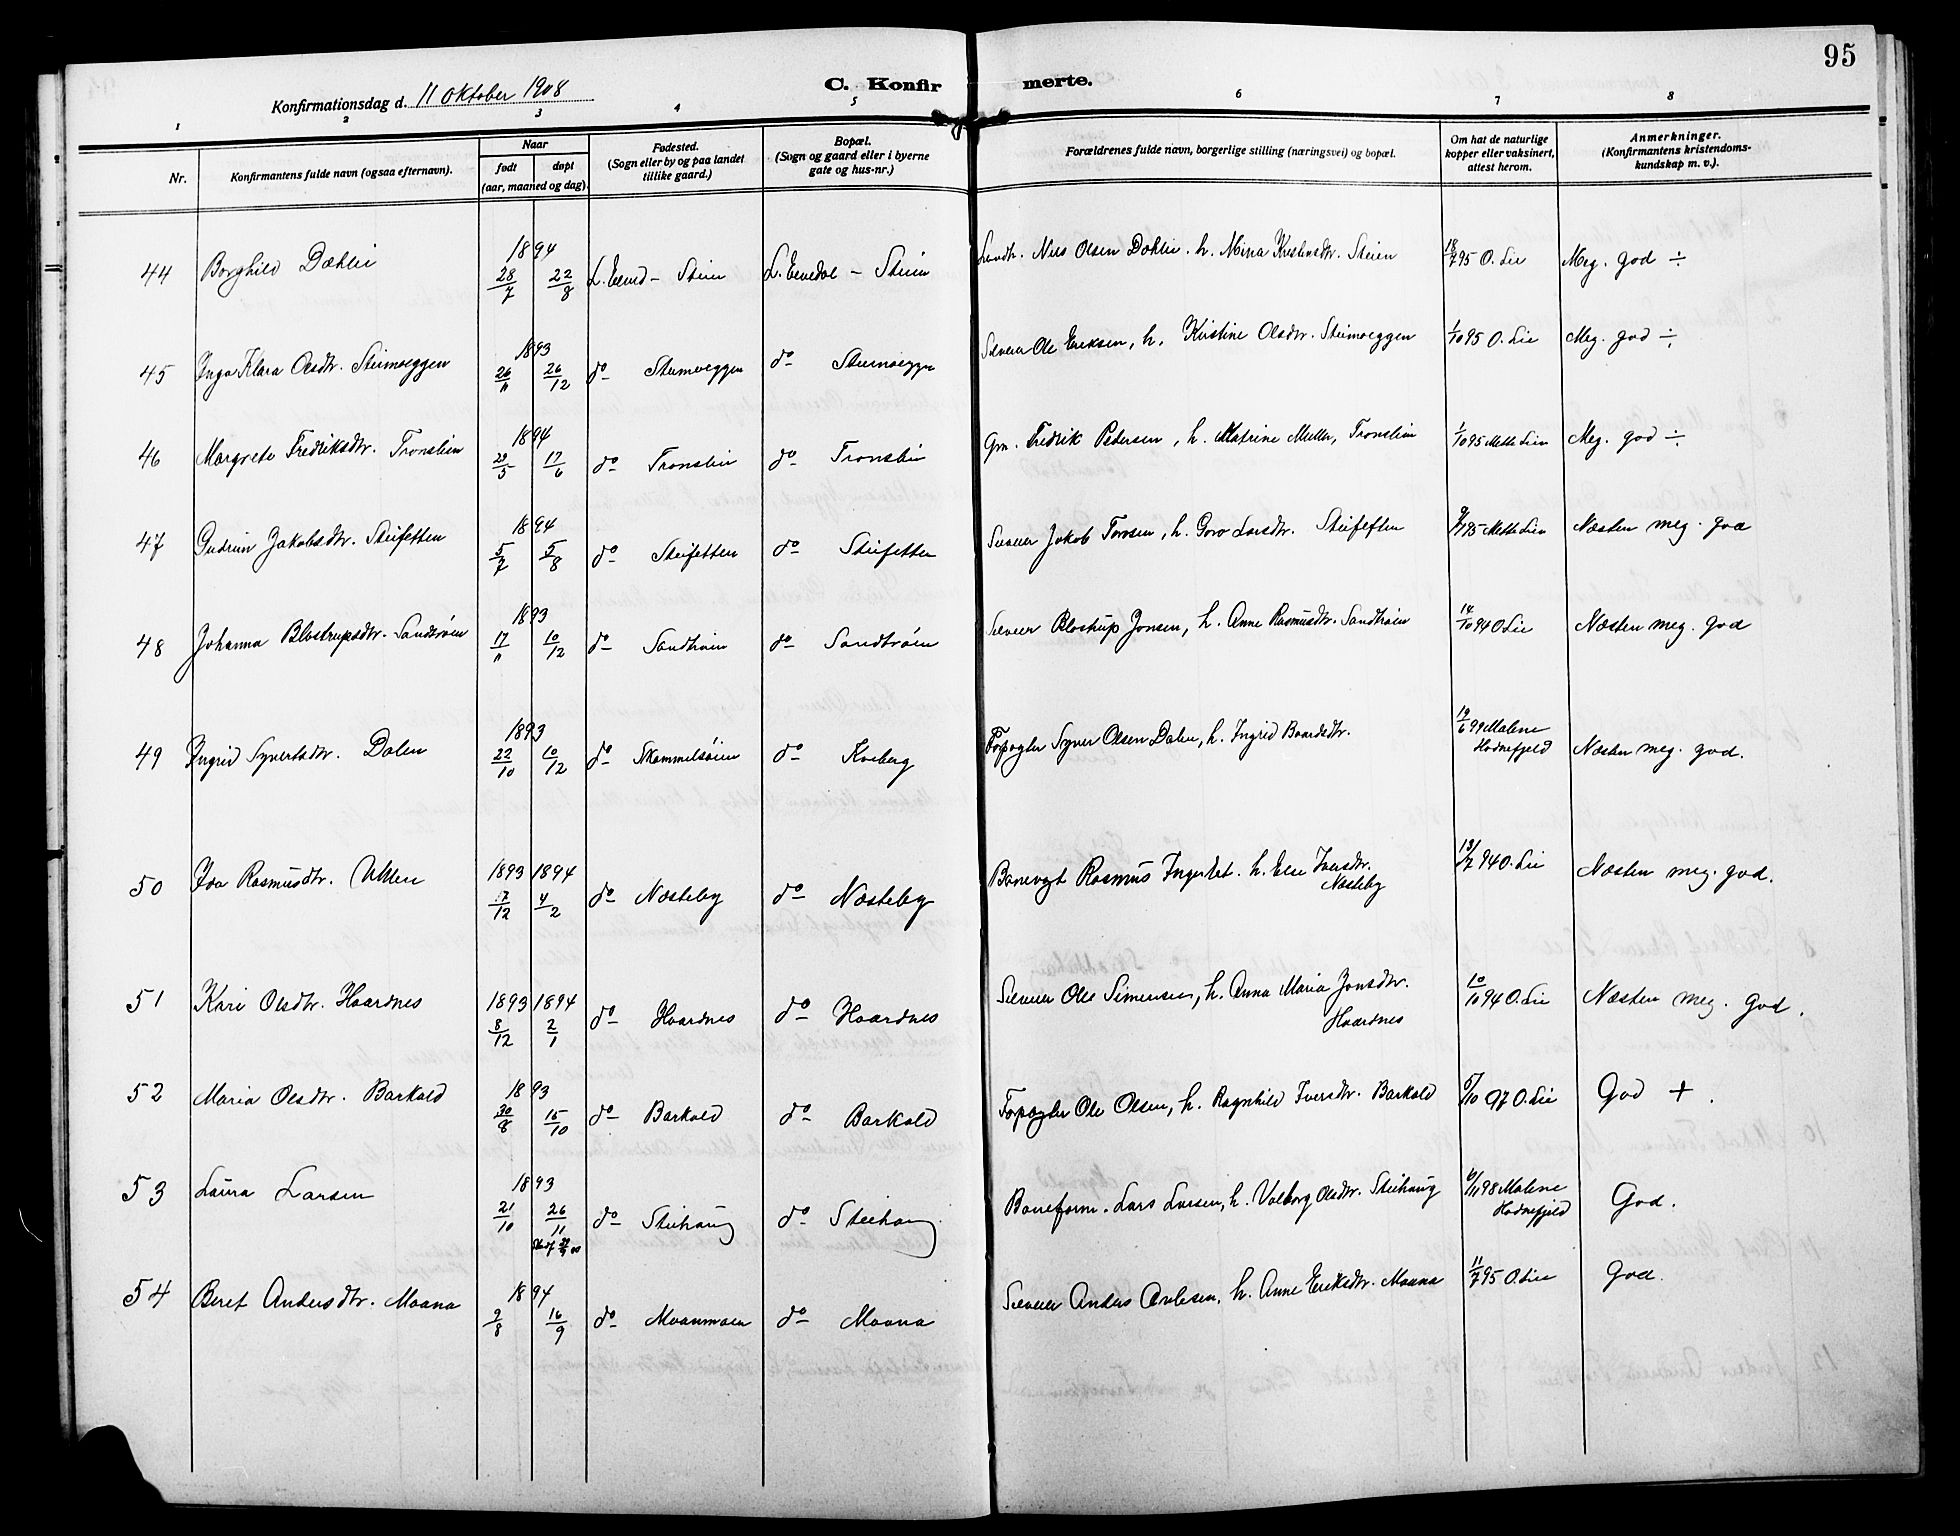 95
Konfirmationsdag d. 11 oktober 1908
C. Konfirmerte.
1 2 3 4 5 6 7 8
Nr.
Konfirmantens fulde navn (ogsaa efternavn).
Naar
født døpt
(aar, maaned og dag).
Fødested.
(Sogn eller by og paa landet
tillike gaard.)
Bopæl.
(Sogn og gaard eller i byerne
gate og hus-nr.)
Forældrenes fulde navn, borgerlige stilling (næringsvei) og bopæl.
Om hat de naturlige
kopper eller vaksinert,
attest herom.
Anmerkninger.
(Konfirmantens kristendoms-
kundskap m. v.).
1894
44 Borghild Dæhlie 28/7 22/8 L. Elvd - Steien L. Elvedal - Steien Nils Olsen Dæhlie. h. Steien 18/7 95 O. Lie Meg. god ÷
1893
45 Inga Klara Olsdtr. Steimoeggen 26/11 26/12 do Steimoeggen do Steimoeggen Selveier Ole Eriksen, h. Kristine Olsdtr. Steimoeggen 1/10 95 O. Lie Meg. god ÷
1894
46 Margrete Fredriksdtr. Tronslien 29/5 17/6 do Tronslien do Tronslien Gm. Fredrik Pedersen, h. Katrine Muller, Tronslien 1/10 95 Mette Lien Meg. god ÷
1894
47 Gudrun Jakobsdtr. Steifetten 5/7 5/8 do Steifetten do Steifetten Selveier Jakob Torosen, h. Goro Larsdtr. Steifetten Mette Lien Næsten meg. god
1893
48 Johanna Blostrupsdtr. Sandtrøen 17/11 10/12 do Sandtrøen do Sandtrøen Selveier Blostrup Jonsen, h. Anne Rasmusdtr. Sandtrøen 14/10 94 O. Lie Næsten meg. god
1893
49 Ingrid Syversdtr. Dalen 22/10 10/12 do do Kveberg Forpagter Syver Olsen Dalen, h. Ingrid Baardsdtr. 19/6 99 Malene
Hodnefjeld Næsten meg. god.
1893 1894
50 Ida Rasmusdtr. 7/12 4/2 do Næsteby do Næsteby Banevogt Rasmus h. Iversdtr.
Næsteby
13/7 94 O. Lie Næsten meg. god.
1893 1894
51 Kari Olsdtr. Haardnes 8/12 2/1 do Haardnes do Haardnes Selveier Ole Simensen, h. Anna Maria Jonsdtr.
Haardnes
10/10 94 O. Lie Næsten meg. god.
1893
52 Maria Olsdtr. Barkald 30/8 15/10 do Barkald do Barkald Forpagter Ole Olsen, h. Ragnhild Iversdtr. Barkald 97 O. Lie God +.
1893
53 Laura Larsen 21/10 26/11 do Steihaug do Steihaug. Baneform. Lars Larsen, h. Valborg Olsdtr. Steihaug 98 Malene
Hodnefjeld God.
1894
54 Beret Andersdtr. Moana 9/8 16/9 do Moanmoen do Moana Selveier Anders h. Anne Eriksdtr. Moana 11/7 95 O. Lie God.